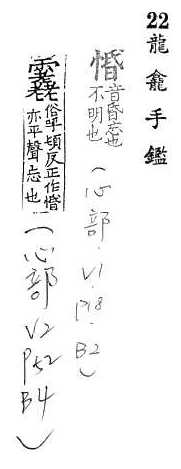 22 龍龕手鑑
惛
音昏忘也
不明也
(心部.V1.P18.B2)
俗乎頓反正作惛
亦平聲忘也
(心部 V2 P52 B4)